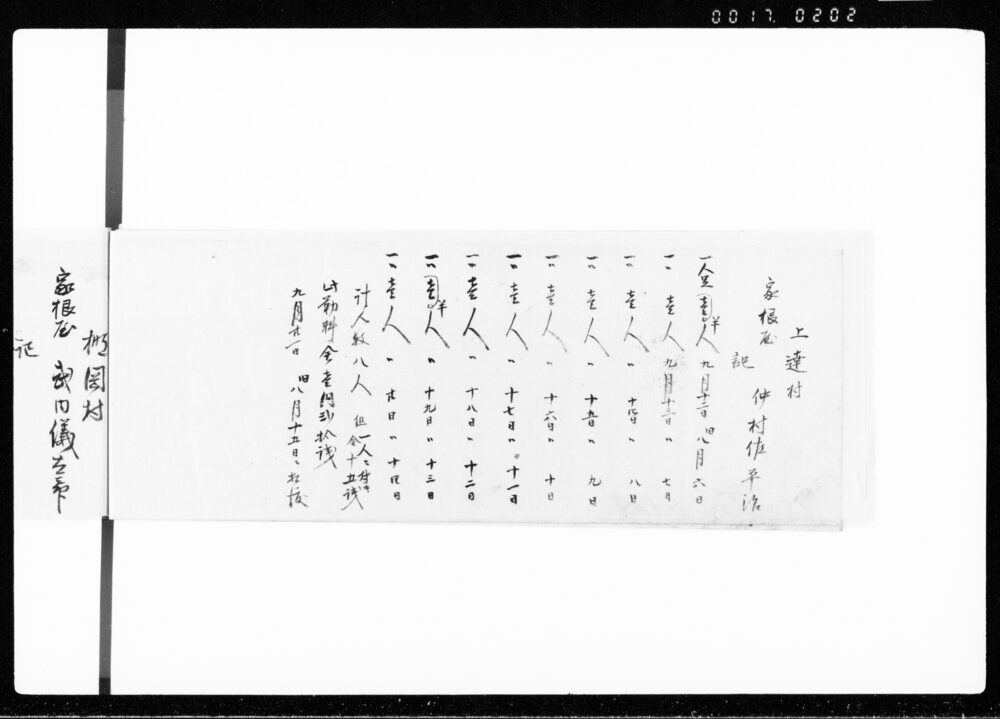 0017 0202
上達村
家根屋 仲村佐平治
記
一人足壱半人 九月十二日 旧八月 六日
一〃壱人 九月十三日〃 七日
一〃壱人 〃 十四日〃 八日
一〃壱人 〃 十五日〃 九日
一〃壱人 〃 十六日〃 十日
一〃壱人 〃 十七日〃 十一日
一〃壱人 〃 十八日〃 十二日
一〃壱半人 〃 十九日〃 十三日
一〃壱人 〃 廿日〃 十四日
計人数八人 但一人ニ付金十五銭
此勤料金壱円弐拾銭
九月廿一日 旧八月十五日ニ相渡
棚岡村
家根屋 武内儀左衛
記